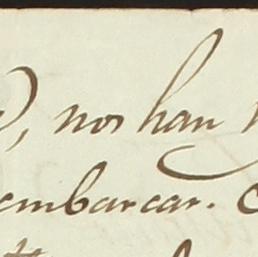 , nos han
embarcar.